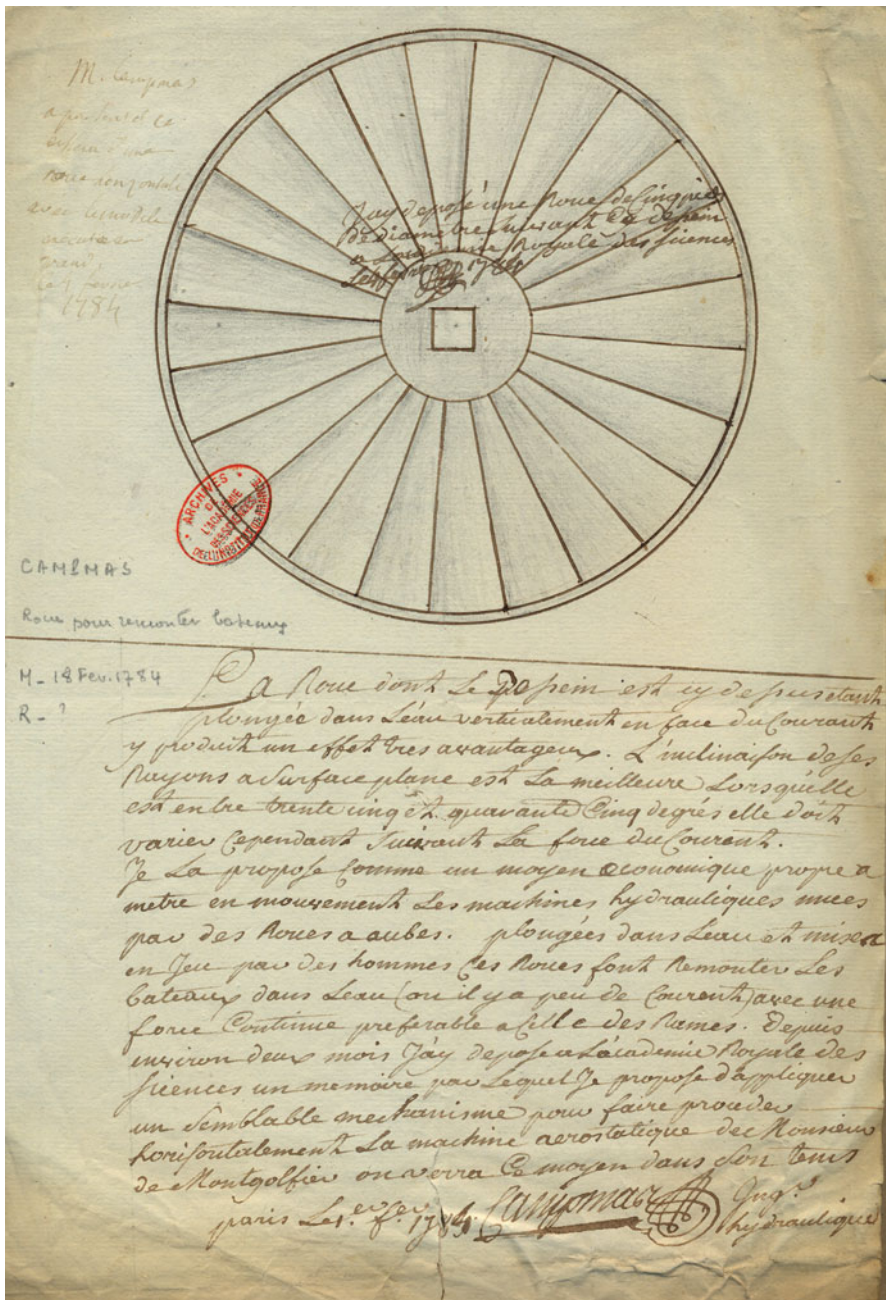 M. Campmas
a présenté ce
dessein d'une
roue horizontale
avec le modele
executé en
grand
le 4 fevrier
1784
J'ay deposé une Roue de Cinq pieds
de diametre suivant ce dessein
a Royale des siences
Le 4 fevrier 1784
ARCHIVES
DE
L'ACADEMIE
DES SCIENCES
DE L'INSTITUT DE FRANCE
CAMPMAS
Roue pour remonter bateaux
M - 18 Fev. 1784
R - ?
La Roue dont Le Dessein est cy dessus etant
plongée dans L'éau verticalement en face du Courant
y produit un effet tres avantageux. L'inclinaison de ses
Rayons a Surface plane est La meilleure Lorsqu'elle
est entre trente cinq et quarante Cinq degrés elle doit
varier Cependant Suivant La force du Courent.
Je La propose Comme un moyen œconomique propre a
metre en mouvement Les machines hydrauliques mues
par des Roues a aubes. plongées dans Leau et mises
en Jeu par des hommes Ces Roues font Remonter Les
bateaux dans Leau (ou il y a peu de Courent) avec une
force Continue preferable a Celle des Rames. Depuis
environ deux mois J'ay deposé a L'académie Royale des
siences un memoire par Lequel Je propose d'appliquer
un Semblable mechanisme pour faire proceder
horisontalement La machine aerostatique de Monsieur
de Montgolfier on verra Ce moyen dans Son tems
paris Le 1.er f.er 1784. Campmas Ing.r
hydraulique